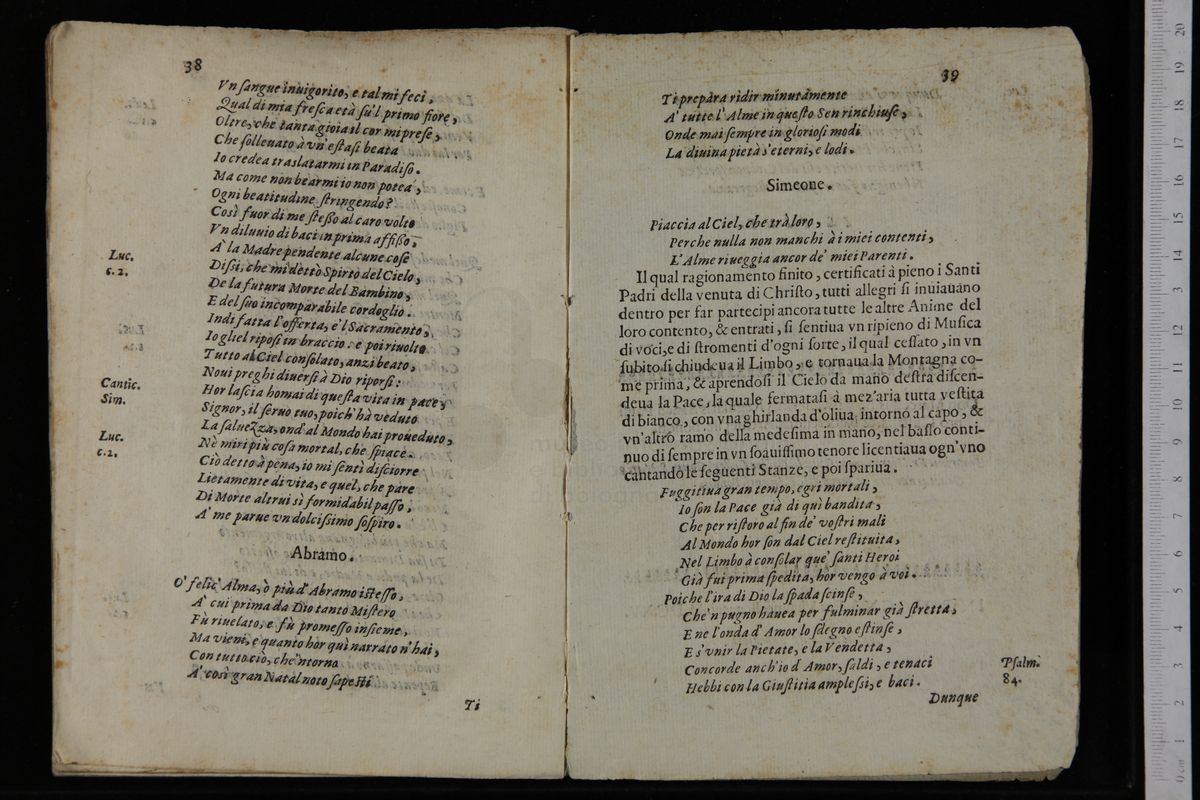 38
Vn ſangue inuigorito, e tal mi feci,
Qual di mia freſca età ſu'l primo fiore,
Oltre, che tanta gioia il cor mi preſe,
Che ſolleuato à vn'eſtaſi beata
Io credea traslatarmi in Paradiſo.
Ma come non bearmi io non potea,
Ogni beatitudine ſtringendo?
Così fuor di me ſteßo al caro volto
Vn diluuio di baci in prima affißo,
A' la Madre pendente alcune coſe
Luc.
c. 2.
Diſsi, che mi dettò Spirto del Cielo,
De la futura Morte del Bambino,
E del ſuo incomparabile cordoglio.
Indi fatta l'offerta, e'l Sacramento,
Io gliel ripoſi in braccio: e poi riuolto
Tutto al Ciel conſolato, anzi beato,
Noui preghi diuerſi à Dio riporſi:
Cantic.
Sim.
Hor laſcia homai di queſta vita in pace,
Signor, il ſeruo tuo, poich' hà veduto
La ſalueZza, ond' al Mondo hai proueduto,
Luc.
c. 2.
Nè miri più coſa mortal, che ſpiace.
Ciò detto à pena, io mi ſentì diſciorre
Lietamente di vita, e quel, che pare
Di Morte altrui sì formidabil paſſo,
A' me parue vn dolciſsimo ſoſpiro.
Abramo.
O' felic' Alma, ò più d' Abramo iſteſſo,
A' cui prima da Dio tanto Miſtero
Fù riuelato, e fù promeſſo inſieme,
Ma vieni, e quanto hor quì narrato n' hai,
Con tutto ciò, che'ntorno
A' così gran Natàl noto ſapeſti
Ti
39
Ti prepàra ridir minutàmente
A' tutte l' Alme in queſto Sen rinchiuſe,
Onde mai ſempre in glorioſi modi
La diuina pietà s'eterni, e lodi.
Simeone.
Piaccia al Ciel, che trà loro,
Perche nulla non manchi à i miei contenti,
L'Alme riueggia ancor de' miei Parenti.
Il qual ragionamento finito, certificati à pieno i Santi
Padri della venuta di Chriſto, tutti allegri ſi inuiauano
dentro per far partecipi ancora tutte le altre Anime del
loro contento, & entrati, ſi ſentiua vn ripieno di Muſica
di voci, e di ſtromenti d'ogni ſorte, il qual ceſſato, in vn
ſubito ſi chiudeua il Limbo, e tornaua la Montagna co-
me prima, & aprendoſi il Cielo da mano deſtra diſcen-
deua la Pace, la quale fermataſi à mez'aria tutta veſtita
di bianco, con vna ghirlanda d'oliua intorno al capo, &
vn'altro ramo della medeſima in mano, nel baſſo conti-
nuo di ſempre in vn ſoauiſſimo tenore licentiaua ogn'vno
cantando le ſeguenti Stanze, e poi ſpariua.
Fuggitiua gran tempo, egri mortali,
Io ſon la Pace già di quì bandita,
Che per riſtoro al fin de' voſtri mali
Al Mondo hor ſon dal Ciel reſtituita,
Nel Limbo à conſolar que' ſanti Heroi
Già fui prima ſpedita, hor vengo à voi.
Poiche l'ira di Dio la ſpada ſcinſe,
Che'n pugno hauea per fulminar già ſtretta,
E ne l'onda d' Amor lo ſdegno eſtinſe,
E s'vnir la Pietate, e la Vendetta,
Concorde anch'io d' Amor, ſaldi, e tenaci
Psalm.
84.
Hebbi con la Giuſtitia ampleſsi, e baci.
Dunque